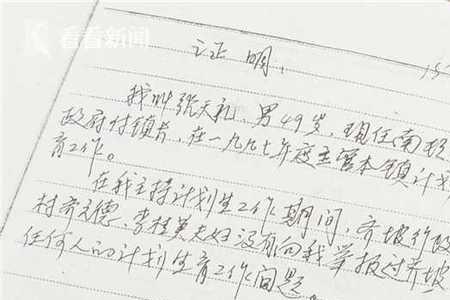 看看新闻
证明
我叫张天礼、男49岁，现任南项
政府付镇长，在一九九七年度主管本镇计划
育工作。
在我主持计划生工作期间，齐坡行政
村齐元德、李桂英夫妇没有向我举报过齐坡
任何人的计划生育工作问题。